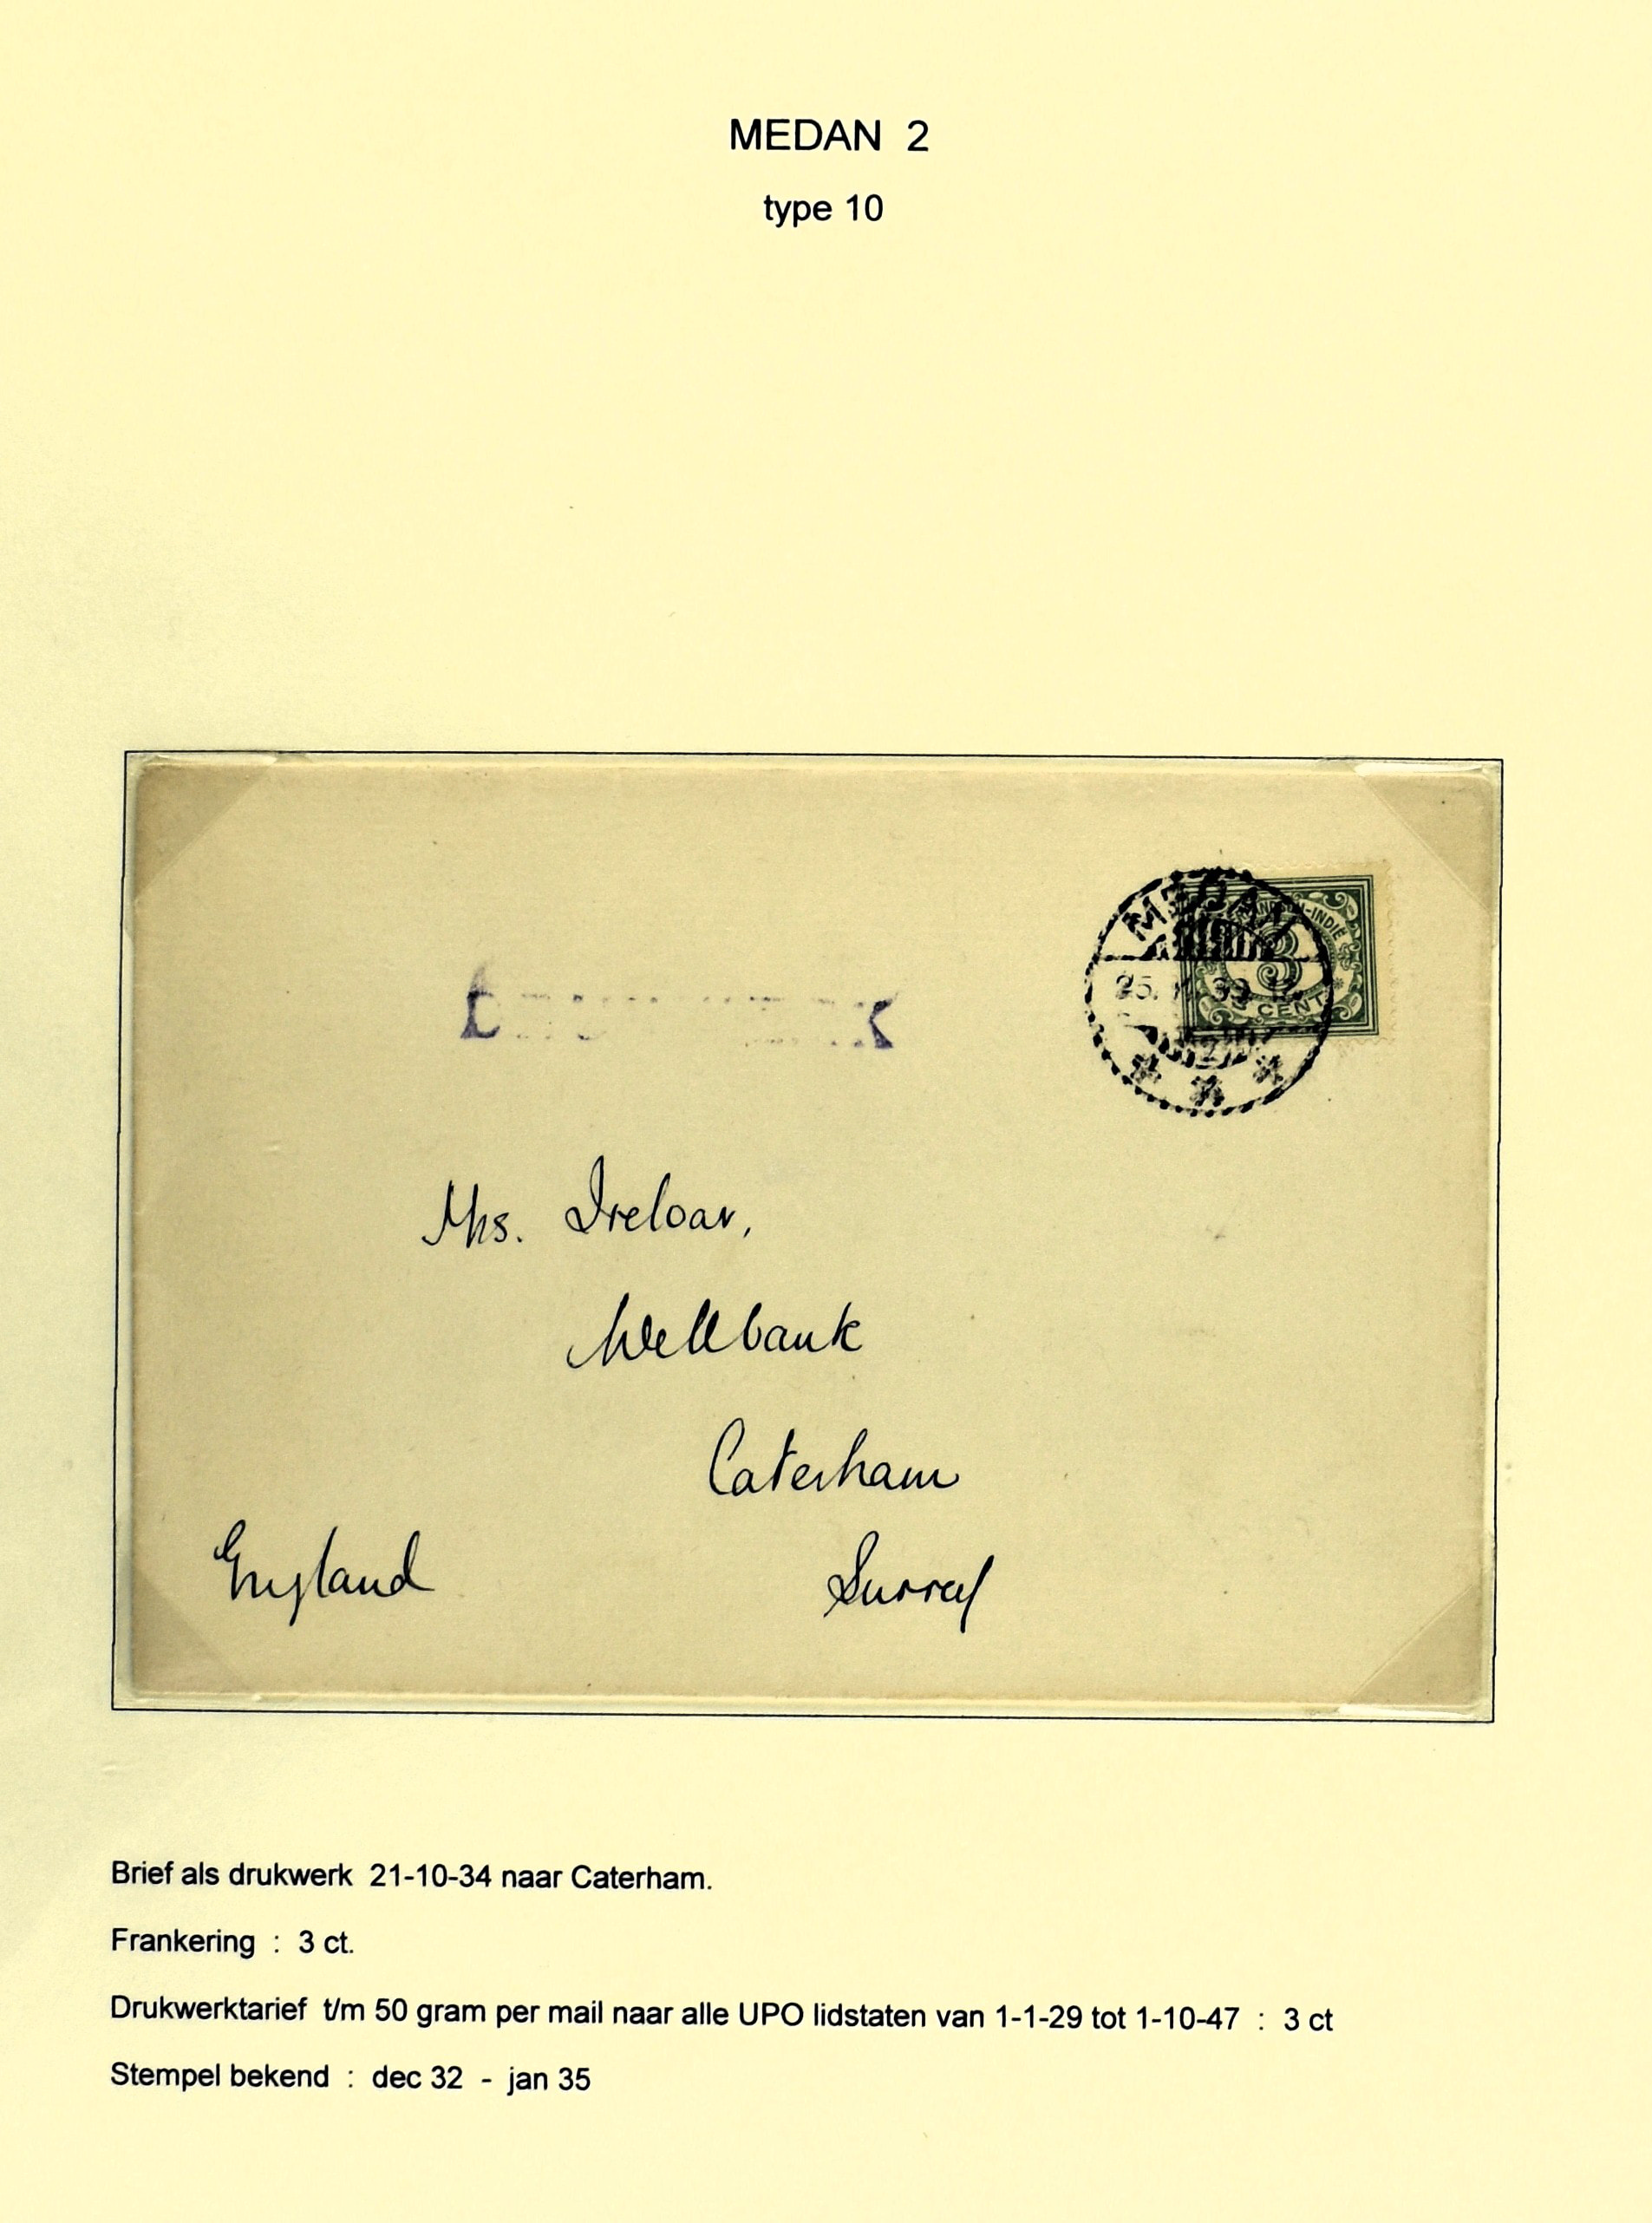 MEDAN 2
type 10
MEDAN
NEDERLANDSCH-INDIË
3
CENT
Mrs. Ireloar,
Wellbank
Caterham
England
Surrey
Brief als drukwerk 21-10-34 naar Caterham.
Frankering : 3 ct.
Drukwerktarief t/m 50 gram per mail naar alle UPO lidstaten van 1-1-29 tot 1-10-47 : 3 ct
Stempel bekend : dec 32 - jan 35